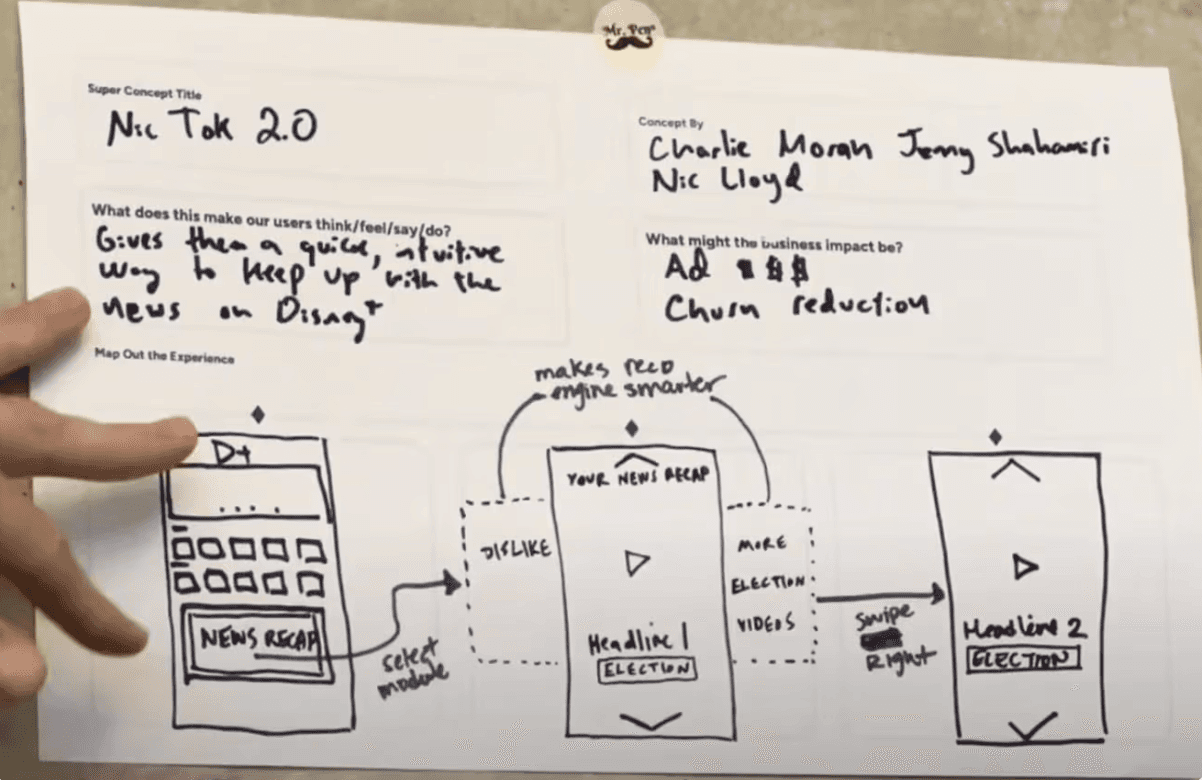 Mr. Pen
Super Concept Title
Nic Tok 2.0
Concept By
Charlie Moran Jenny Shahamiri
Nic Lloyd
What does this make our users think/feel/say/do?
Gives them a quick, intuitive
way to keep up with the
news on Disney+
What might the business impact be?
Ad $$$
Churn reduction
Map Out the Experience
D+
NEWS RECAP
select
module
makes reco
engine smarter
DISLIKE
YOUR NEWS RECAP
Headline 1
ELECTION
MORE
ELECTION
VIDEOS
Swipe
Right
Headline 2
ELECTION